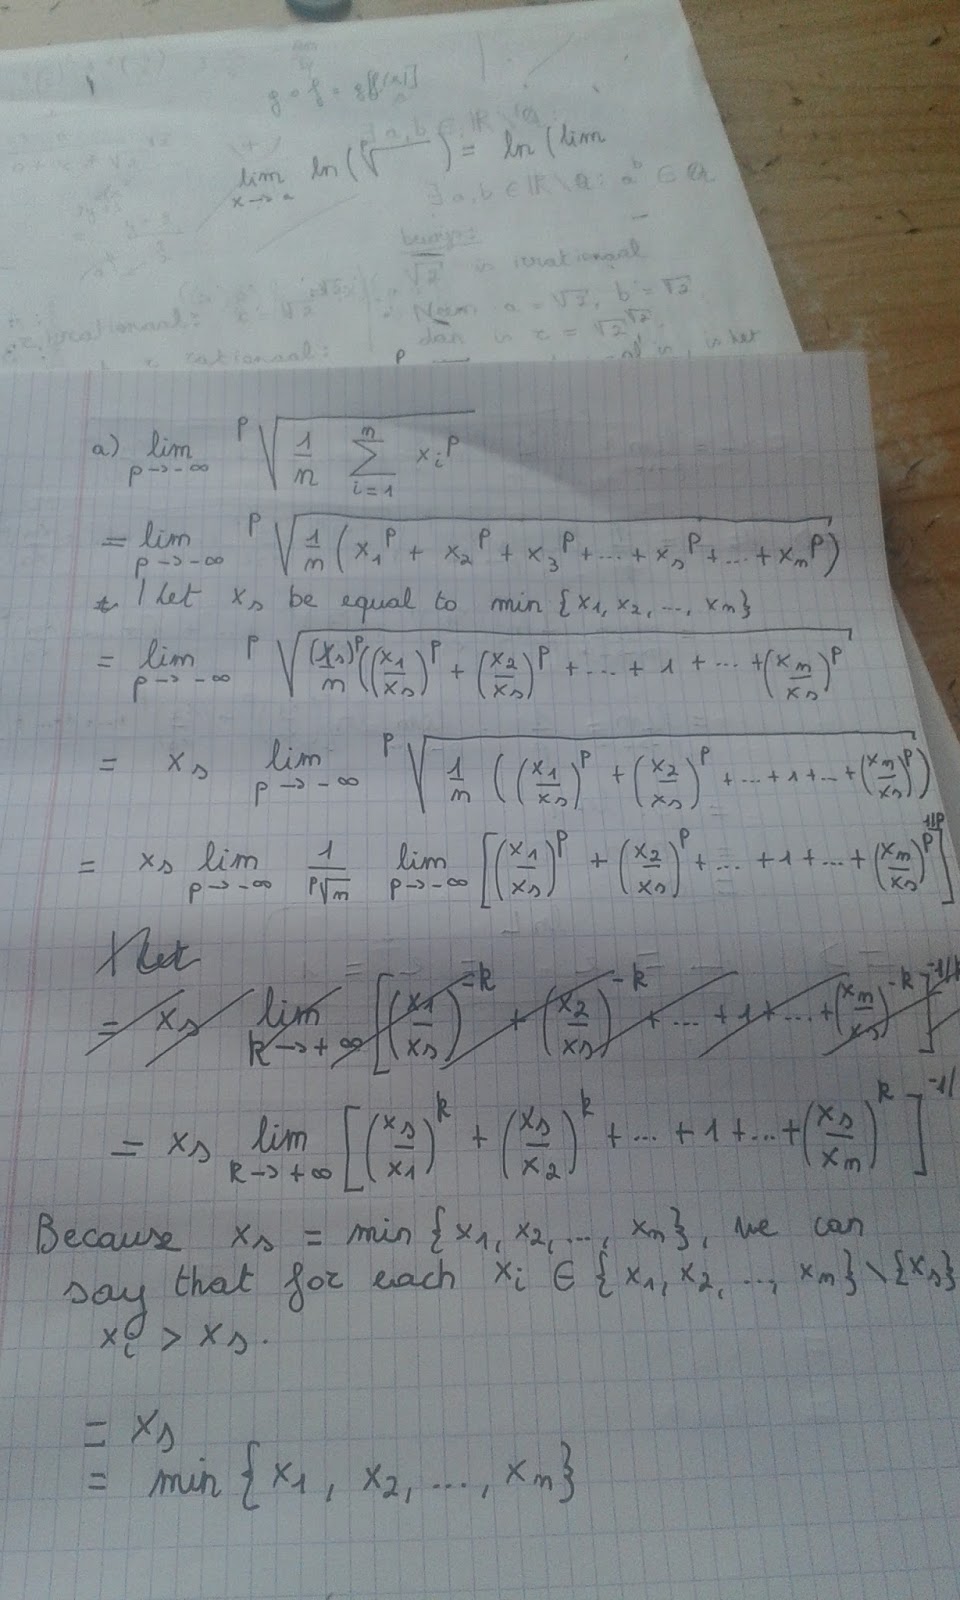 g ∘ f = g[f(x)]
∃ a, b ∈ ℝ \ ℚ
lim x→a ln(ᵖ√ ) = ln(lim
∃ a, b ∈ ℝ \ ℚ : a^b ∈ ℚ
bewijs:
√2 is irrationaal
Neem a = √2, b = √2
dan is x = √2^√2
irrationaal:
x rationaal:
a) lim p→-∞ ᵖ√(1/n ∑_{i=1}^{n} x_i^p)
= lim p→-∞ ᵖ√(1/n (x_1^p + x_2^p + x_3^p + ... + x_s^p + ... + x_n^p))
Let x_s be equal to min {x_1, x_2, ..., x_n}
= lim p→-∞ ᵖ√((x_s)^p/n ((x_1/x_s)^p + (x_2/x_s)^p + ... + 1 + ... + (x_n/x_s)^p
= x_s lim p→-∞ ᵖ√(1/n ((x_1/x_s)^p + (x_2/x_s)^p + ... + 1 + ... + (x_n/x_s)^p))
= x_s lim p→-∞ 1/ᵖ√n lim p→-∞ [(x_1/x_s)^p + (x_2/x_s)^p + ... + 1 + ... + (x_n/x_s)^p]^{1/p}
let
= x_s lim k→+∞ [(x_1/x_s)^{-k} + (x_2/x_s)^{-k} + ... + 1 + ... + (x_n/x_s)^{-k}]^{-1/k}
= x_s lim k→+∞ [(x_s/x_1)^k + (x_s/x_2)^k + ... + 1 + ... + (x_s/x_n)^k]^{-1/
Because x_s = min {x_1, x_2, ..., x_n}, we can
say that for each x_i ∈ {x_1, x_2, ..., x_n} \ {x_s}
x_i > x_s.
= x_s
= min {x_1, x_2, ..., x_n}